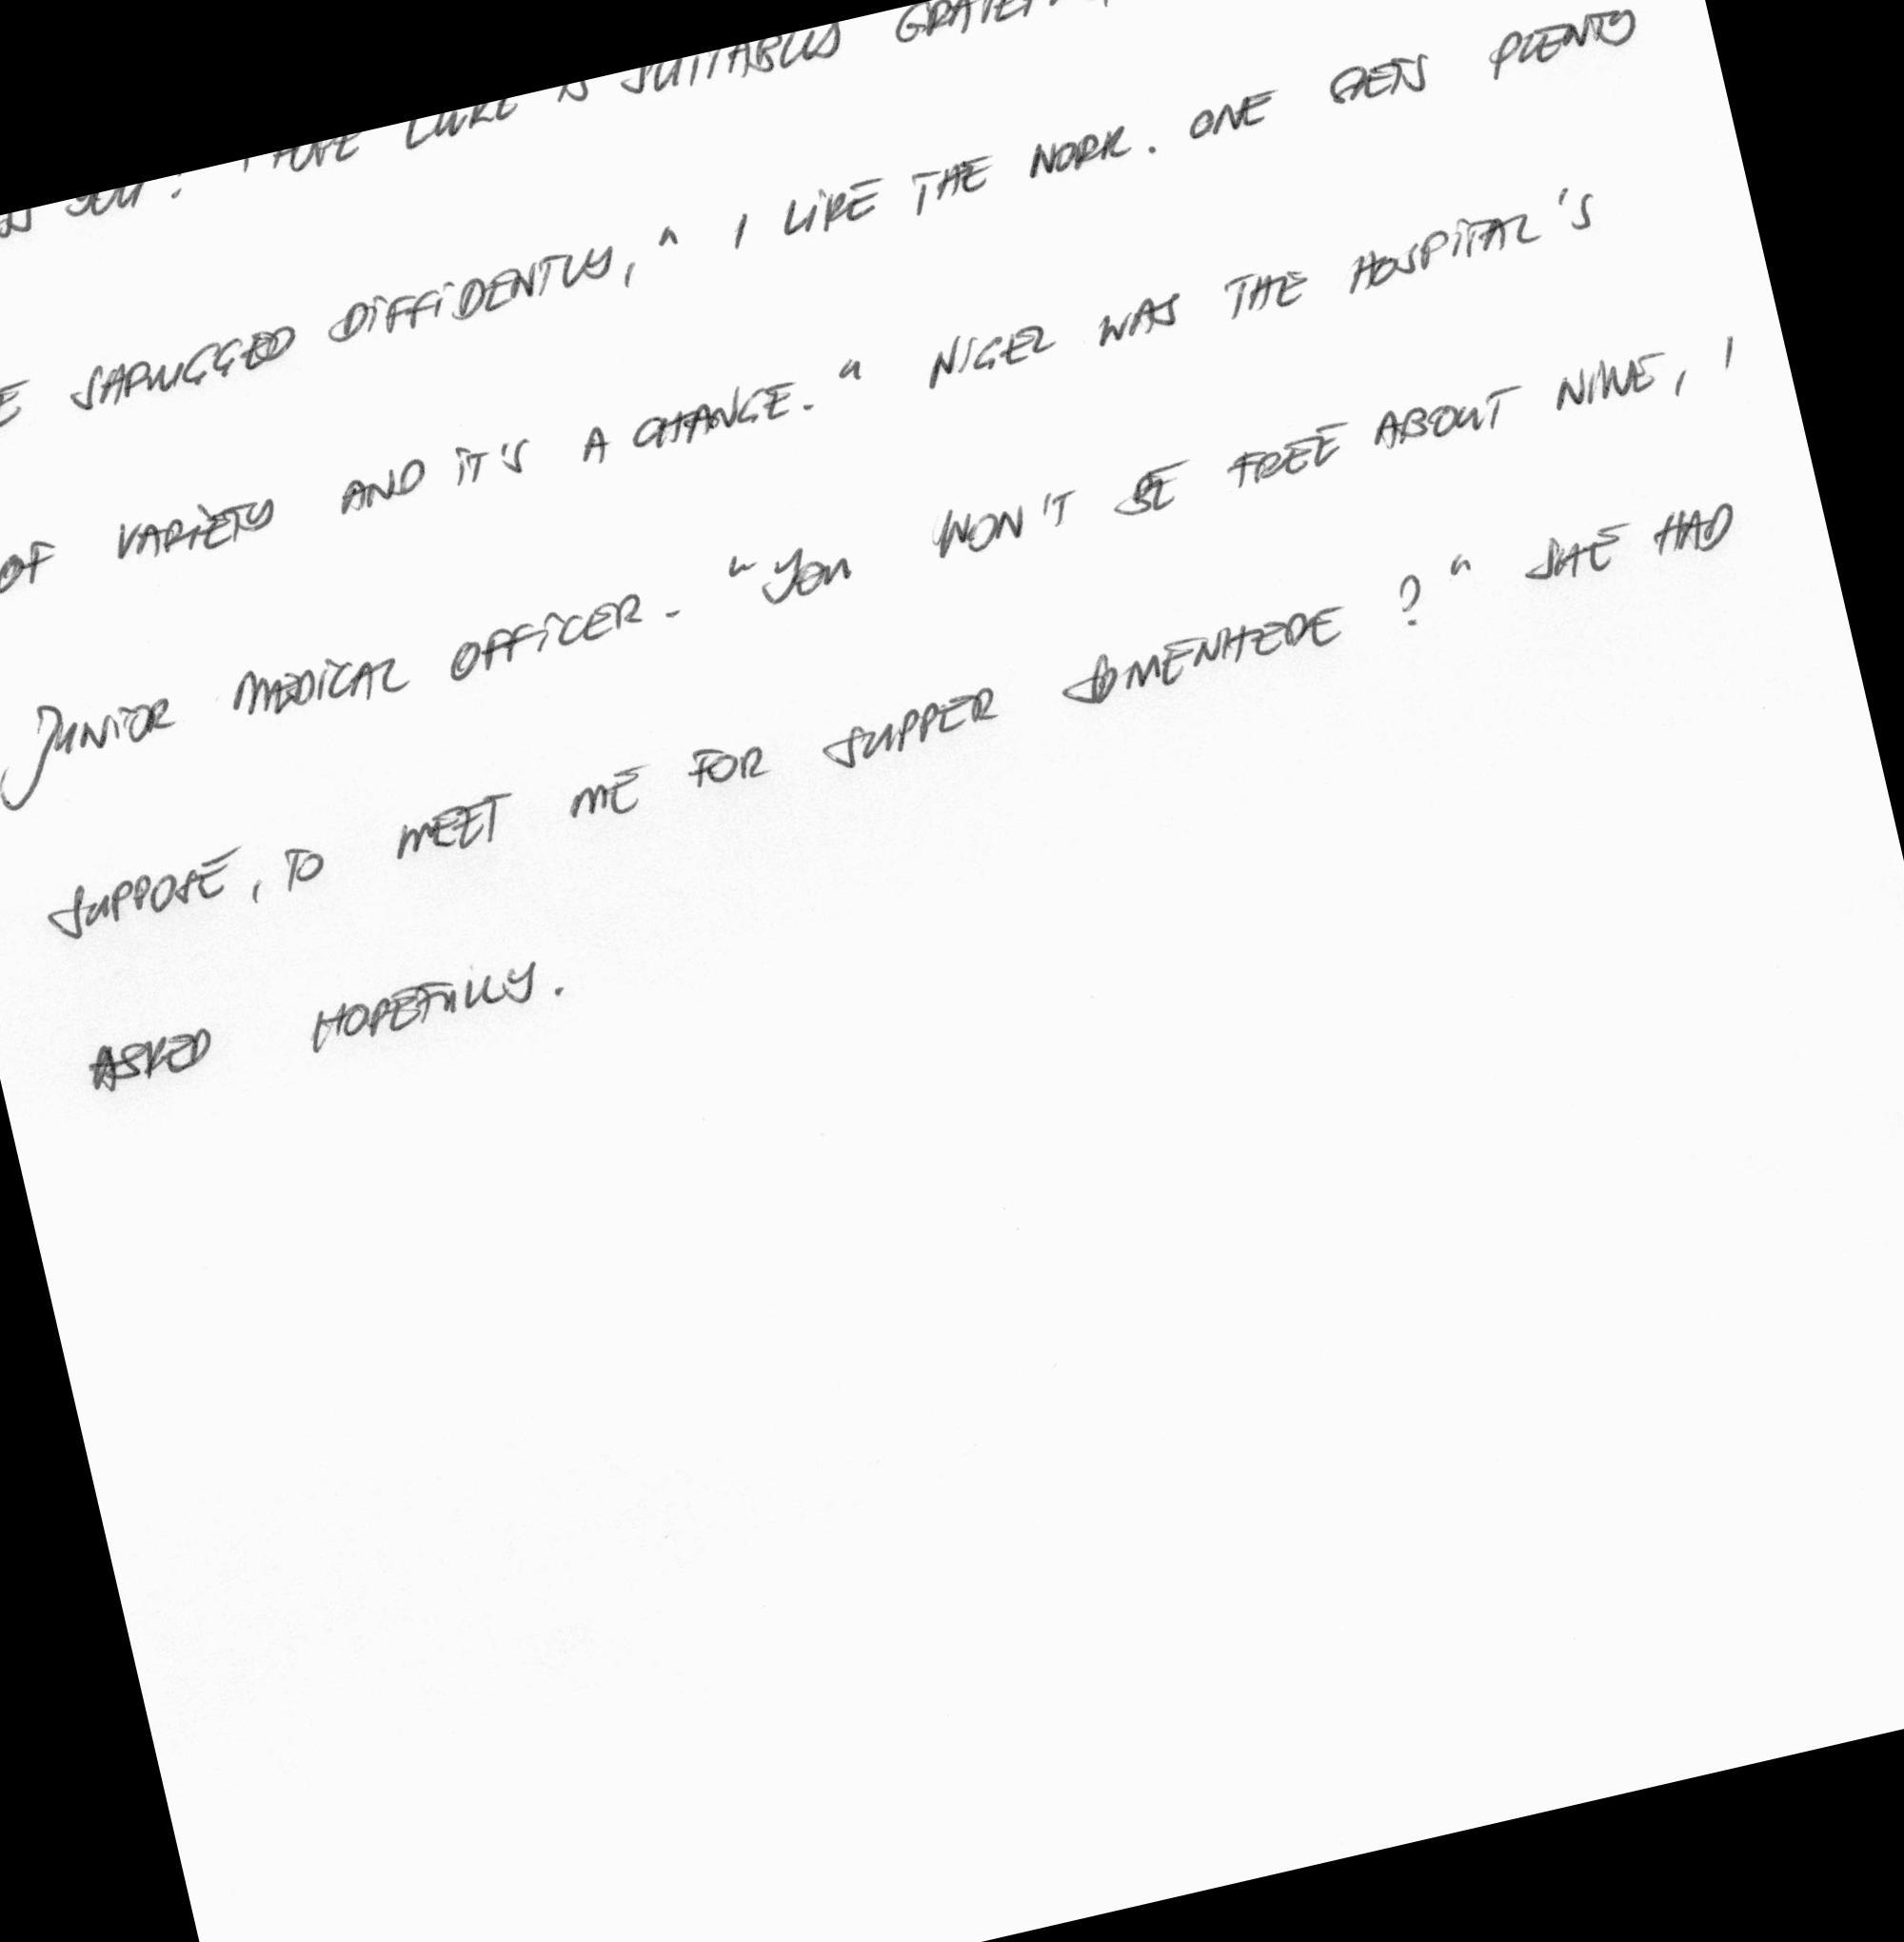 YOU. I HOPE LUKE IS SUITABLY
SHRUGGED DIFFIDENTLY, " I LIKE THE WORK. ONE GETS PLENTY
OF VARIETY AND IT'S A CHANGE. " NIGEL WAS THE HOSPITAL'S
JUNIOR MEDICAL OFFICER. "YOU WON'T BE FREE ABOUT NINE, I
SUPPOSE, TO MEET ME FOR SUPPER SOMEWHERE ? " SHE HAD
ASKED HOPEFULLY.